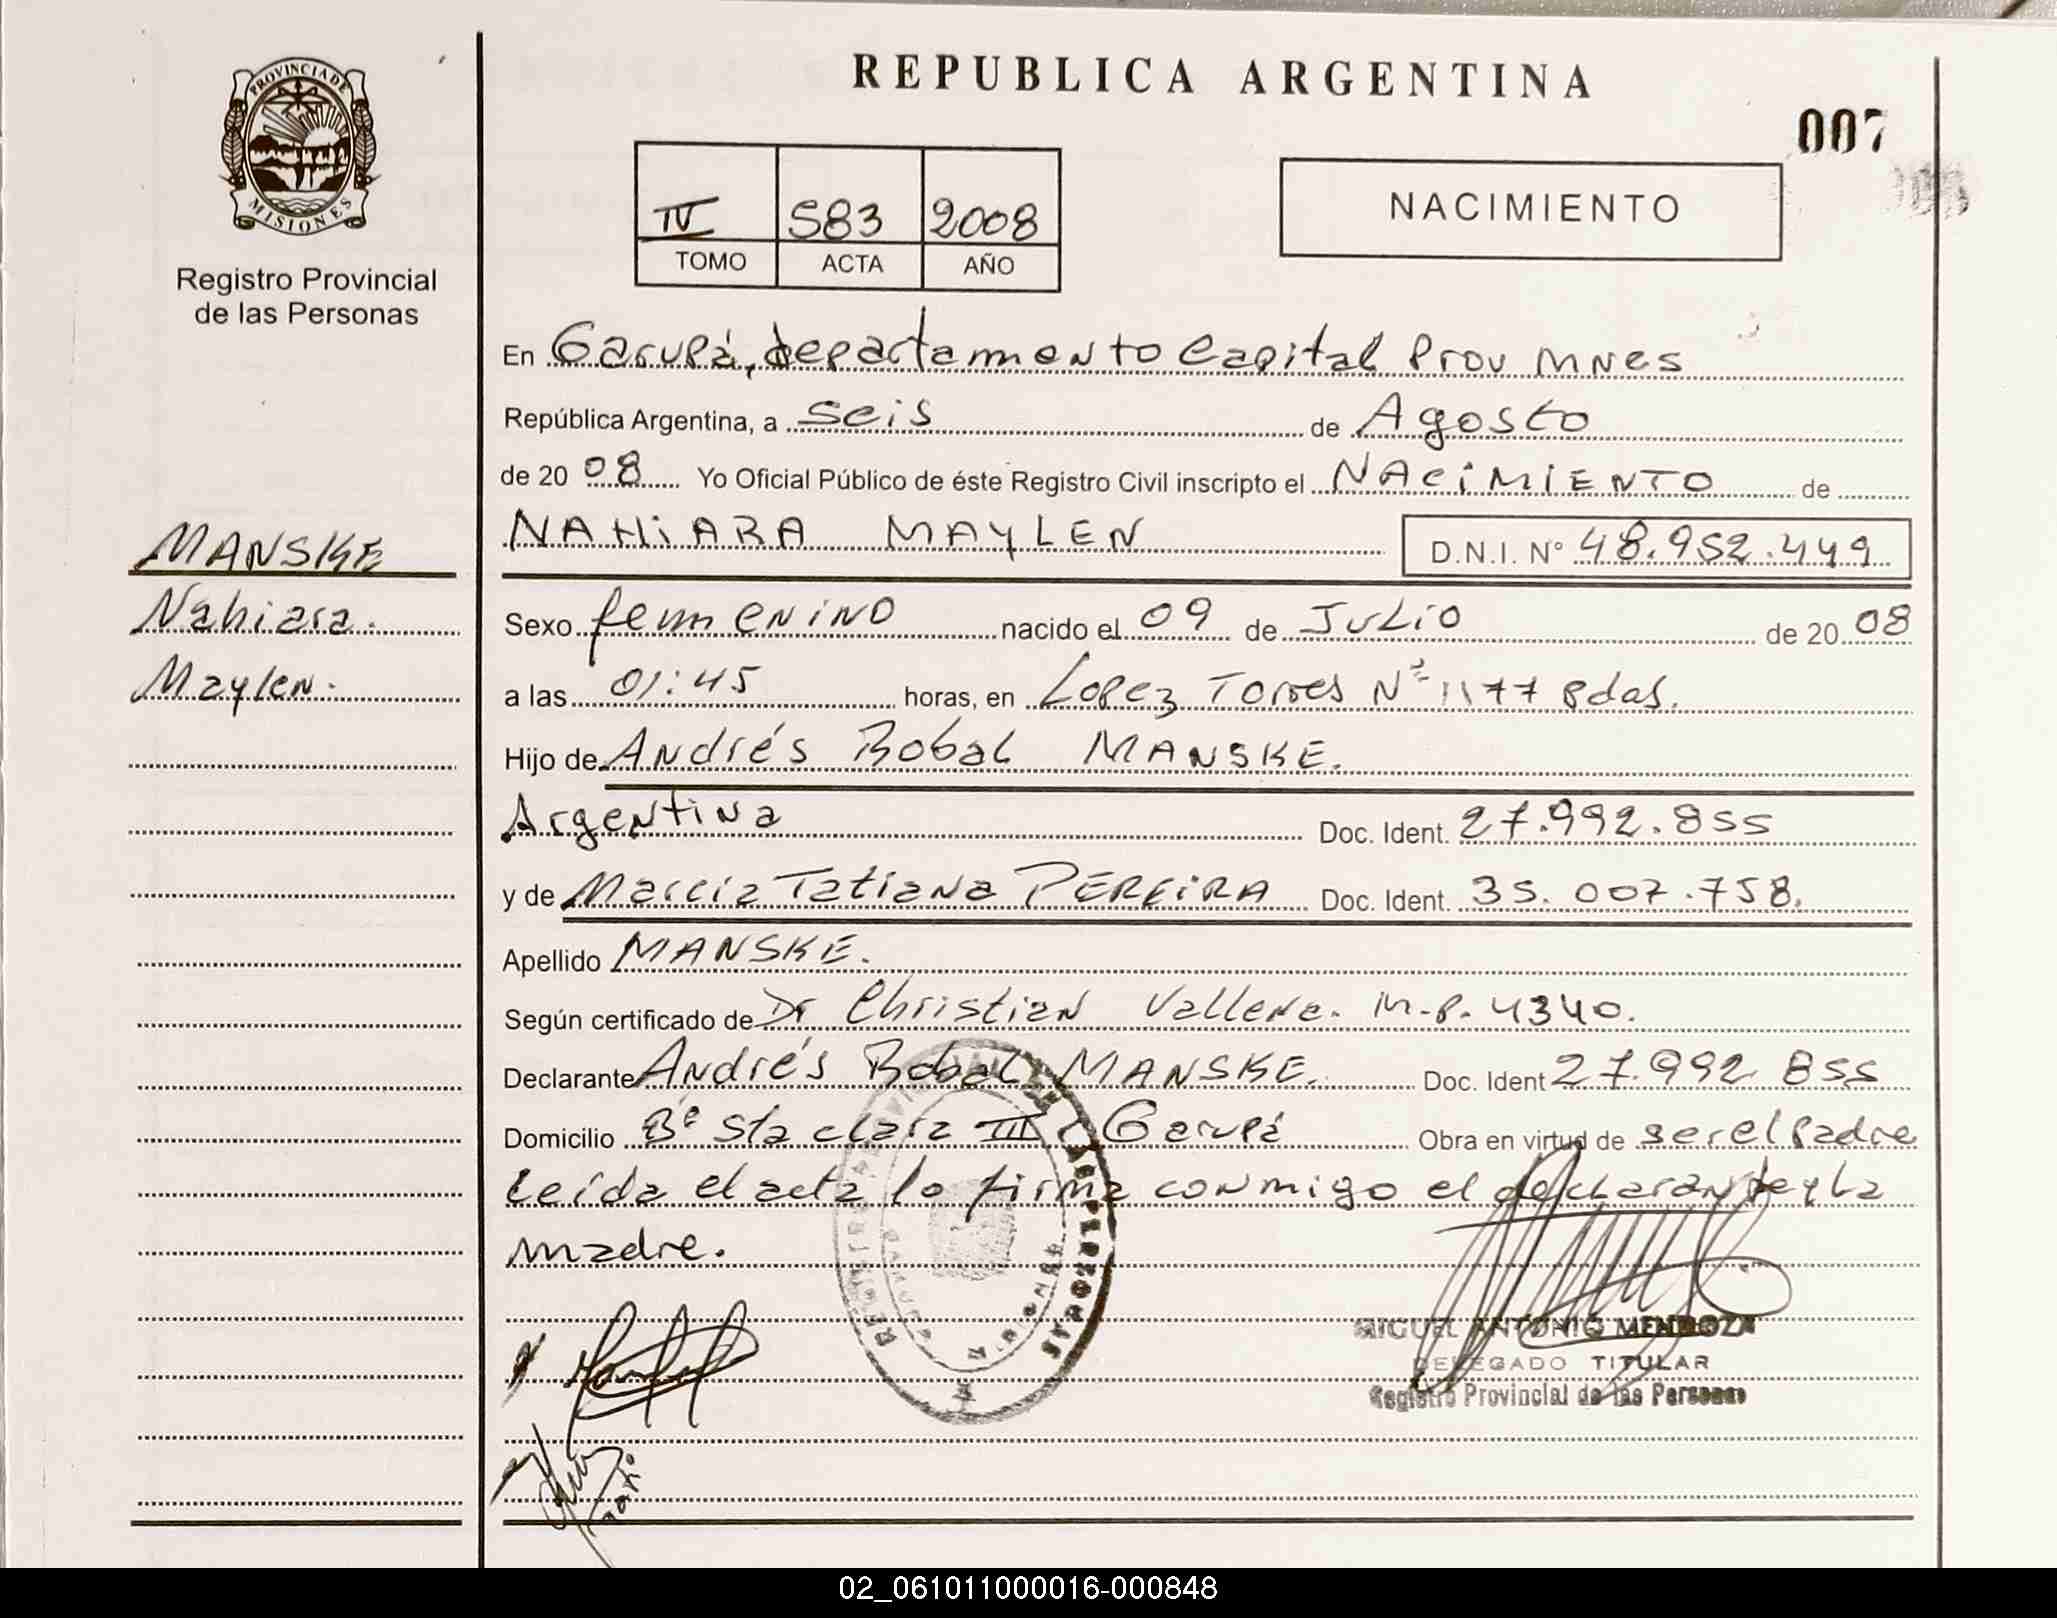 PROVINCIA DE
MISIONES
Registro Provincial
de las Personas
REPUBLICA ARGENTINA
007
IV 583 2008
TOMO ACTA AÑO
NACIMIENTO
En Garupá, departamento Capital Prov Mnes
República Argentina, a seis de Agosto
de 2008 Yo Oficial Público de éste Registro Civil inscripto el NACIMIENTO de
NAHIARA MAYLEN D.N.I. Nº 48.952.449
MANSKE
Nahiara.
Maylen.
Sexo femenino nacido el 09 de Julio de 2008
a las 01:45 horas, en Lopez Torres Nº 1177 Pdas.
Hijo de Andrés Bobal MANSKE.
Argentina Doc. Ident. 27.992.855
y de Marcia Tatiana PEREIRA Doc. Ident. 35.007.758.
Apellido MANSKE.
Según certificado de Dr Christian Vallena. M.P. 4340.
Declarante Andrés Bobal MANSKE. Doc. Ident 27.992.855
Domicilio Bº Sta clara III Garupá Obra en virtud de ser el Padre
Leída el acta lo firma conmigo el declarante y la
madre.
MIGUEL ANTONIO MENDOZA
DELEGADO TITULAR
Registro Provincial de las Personas
02_061011000016-000848